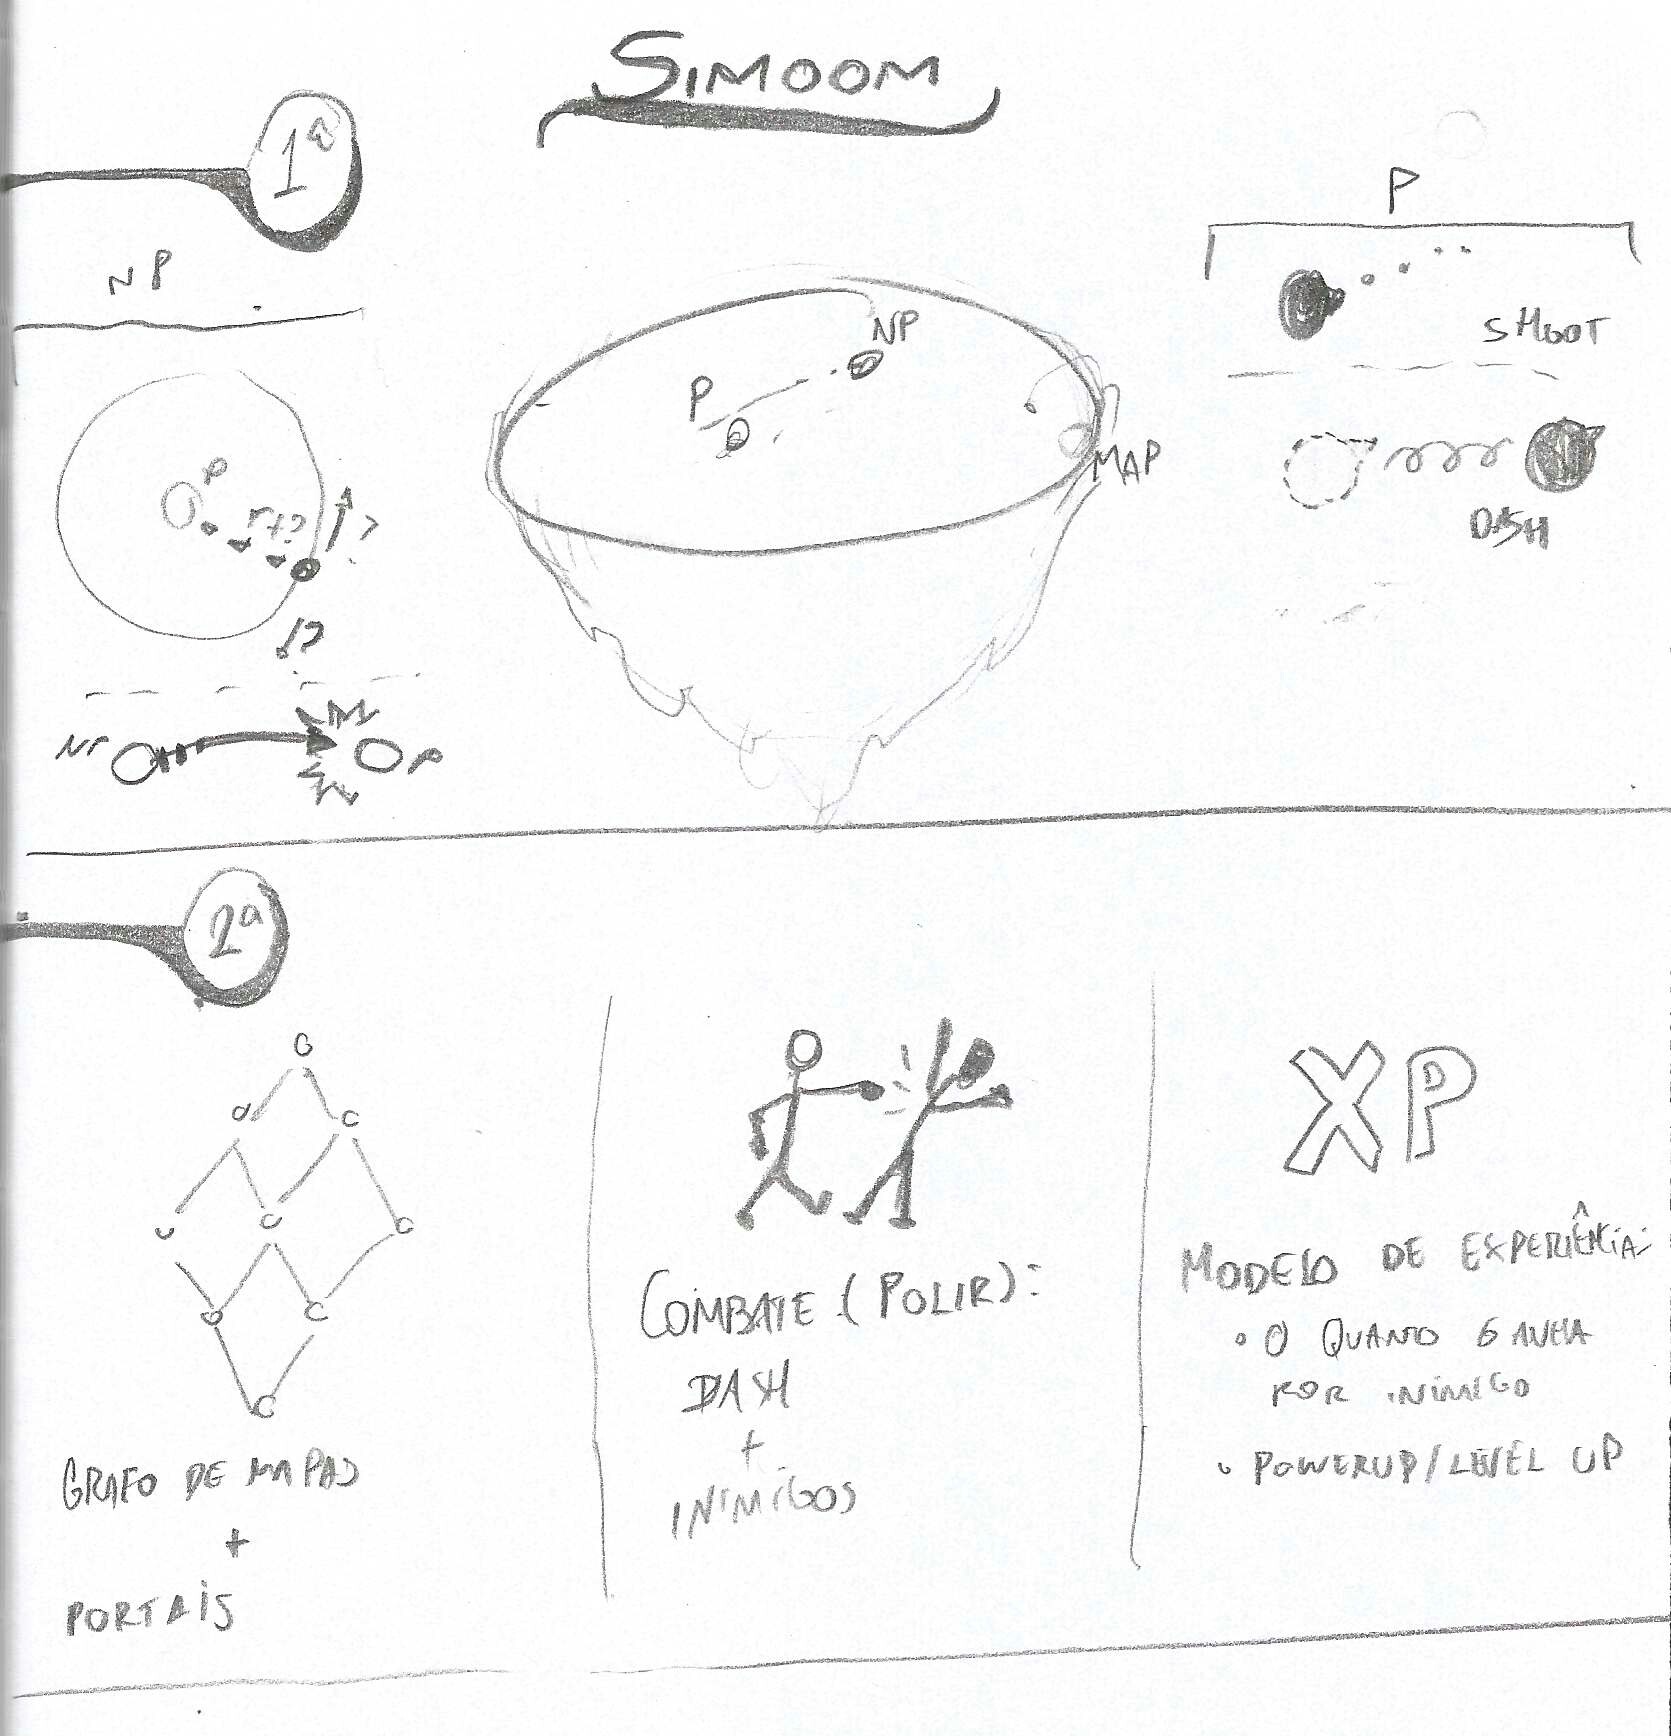 SIMOOM
1ª
NP
P
NP
P
MAP
SHOOT
DASH
P
NP
P
2ª
GRAFO DE MAPAS
+
PORTAIS
COMBATE (POLIR):
DASH
+
INIMIGOS
XP
MODELO DE EXPERIÊNCIA:
• O QUANTO GANHA
POR INIMIGO
• POWERUP/LEVEL UP